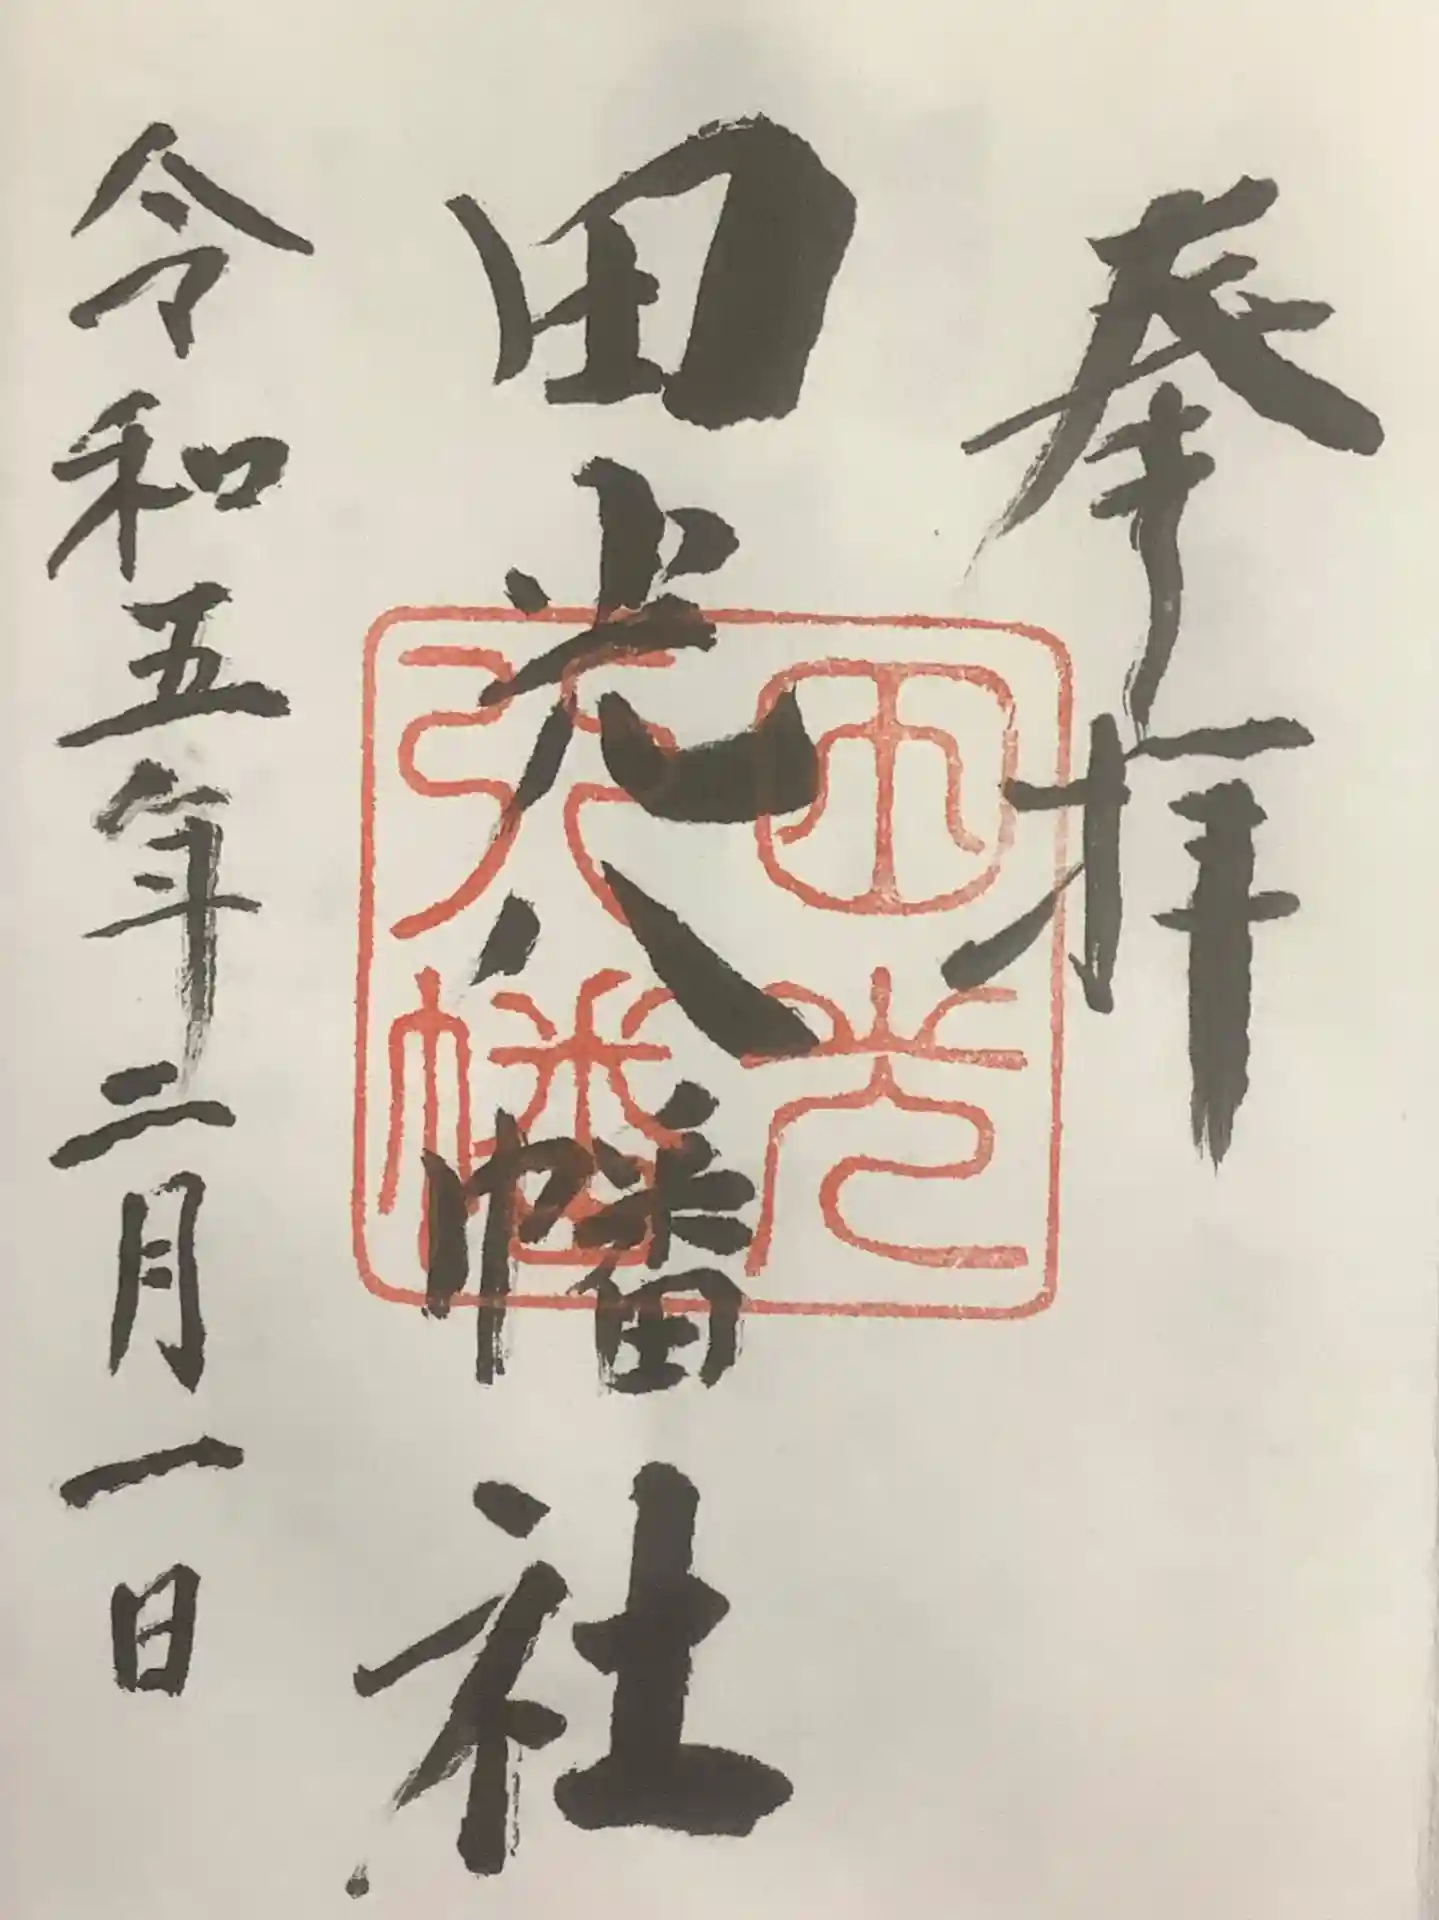 奉拝
田光八幡社
田光
八幡
令和五年二月一日